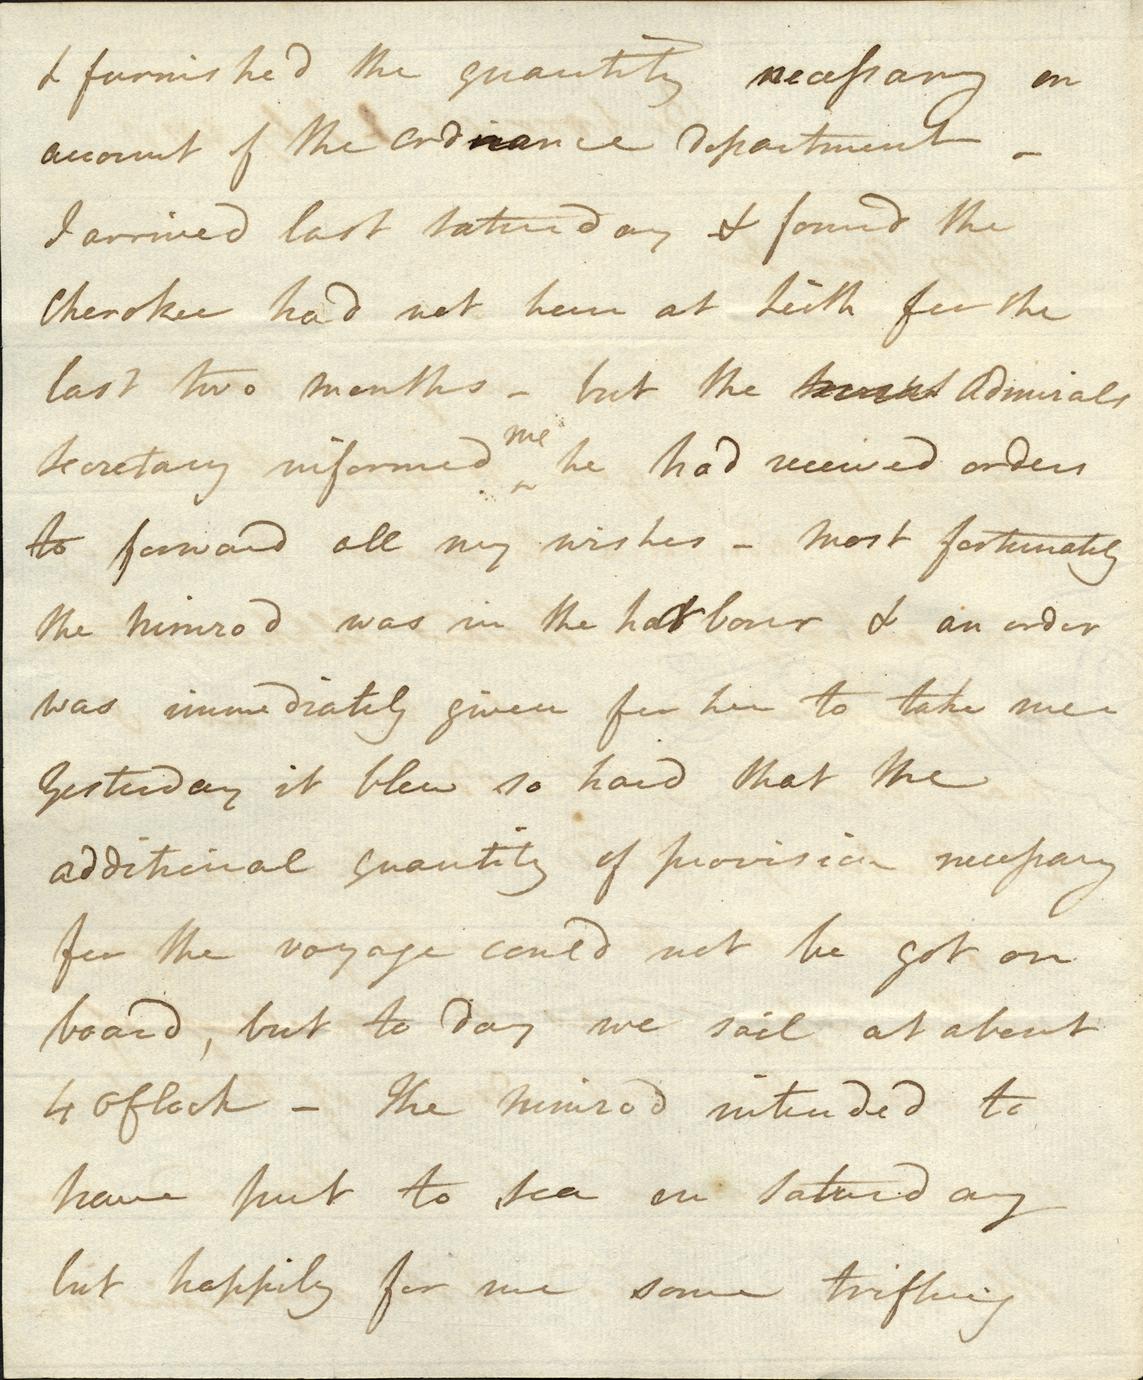 & furnished the quantity necessary on
account of the ordinance department -
I arrived last saturday & found the
Cherokee had not been at Leith for the
last two months - but the Admirals
Secretary informed me he had received orders
to forward all my wishes - most fortunately
the Nimrod was in the harbour & an order
was immediately given for her to take me
Yesterday it blew so hard that the
additional quantity of provision necessary
for the voyage could not be got on
board, but to day we sail at about
4 o Clock - The Nimrod intended to
have put to sea on saturday
but happily for me some trifling